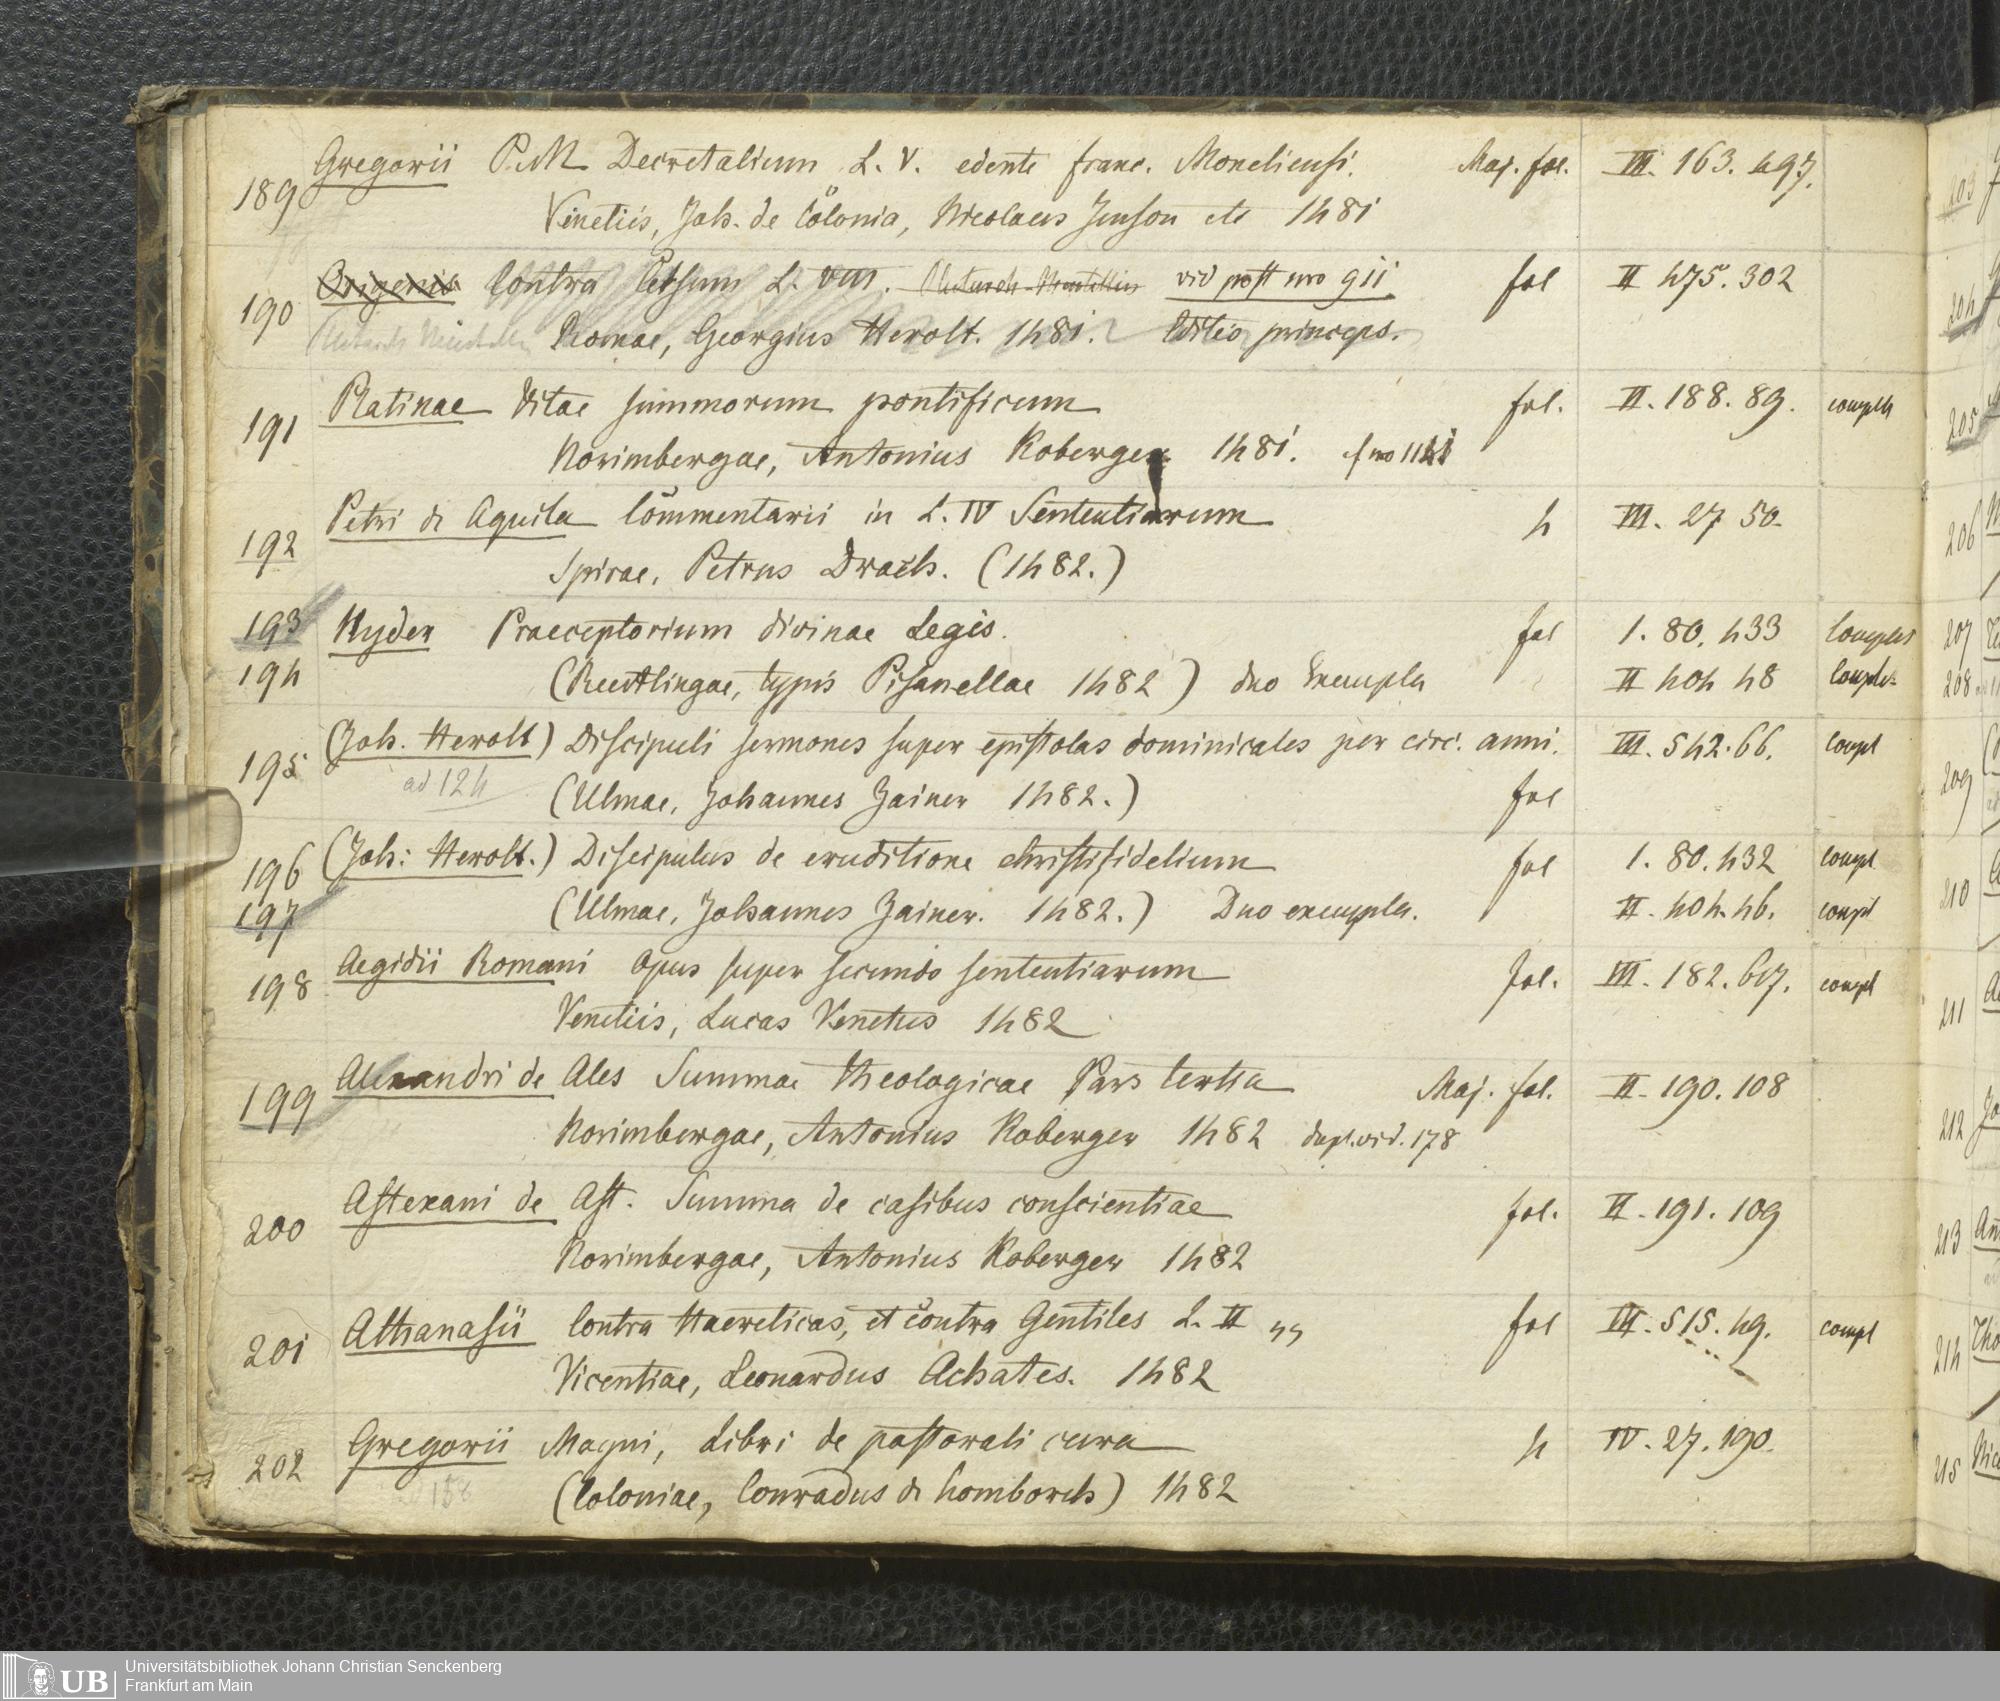 189 Gregorii P.M. Decretalium L. V. edente franc. Moneliensi. Maj. fol. III. 163. 497.
Venetiis, Joh. de Colonia, Nicolaus Jenson etc 1481
190 Origenis Contra Celsum L. VIII. vid post nro 911 fol II 475. 302
Romae, Georgius Herolt. 1481. Editio princeps.
191 Platinae Vitae summorum pontificum fol. II. 188. 89. complt
Norimbergae, Antonius Koberger 1481. cf no
192 Petri de Aquila Commentarii in L. IV Sententiarum 4 III. 27 50.
Spirae, Petrus Drach. (1482.)
193 Nyder Praeceptorium divinae Legis. fol I. 80. 433 Complet
194 (Reutlingae, typis Pisanellae 1482) duo Exempla II 404 48 Complet
195 (Joh. Herolt) Discipuli sermones super epistolas dominicales per circ. anni. III. 542. 66. compl
ad 124 (Ulmae, Johannes Zainer 1482.) fol
196 (Joh: Herolt.) Discipulus de eruditione christifidelium fol I. 80. 432 compl
197 (Ulmae, Johannes Zainer. 1482.) Duo exempla. II. 404. 46. compl
198 Aegidii Romani Opus super secundo sententiarum fol. III. 182. 607. compl
Venetiis, Lucas Venetus 1482
199 Alexandri de Ales Summae theologicae Pars tertia Maj. fol. II. 190. 108
Norimbergae, Antonius Koberger 1482 dupl. vid. 178
200 Astexani de Ast. Summa de casibus conscientiae fol. II. 191. 109
Norimbergae, Antonius Koberger 1482
201 Athanasii Contra Haereticos, et contra Gentiles L. II fol III. 515. 49. compl
Vicentiae, Leonardus Achates. 1482
202 Gregorii Magni, Libri de pastorali cura 4 IV. 27. 190.
158 (Coloniae, Conradus de homborch) 1482
203
204
205
206
207
208
209
210
211
212
213
214
215
UB Universitätsbibliothek Johann Christian Senckenberg
Frankfurt am Main